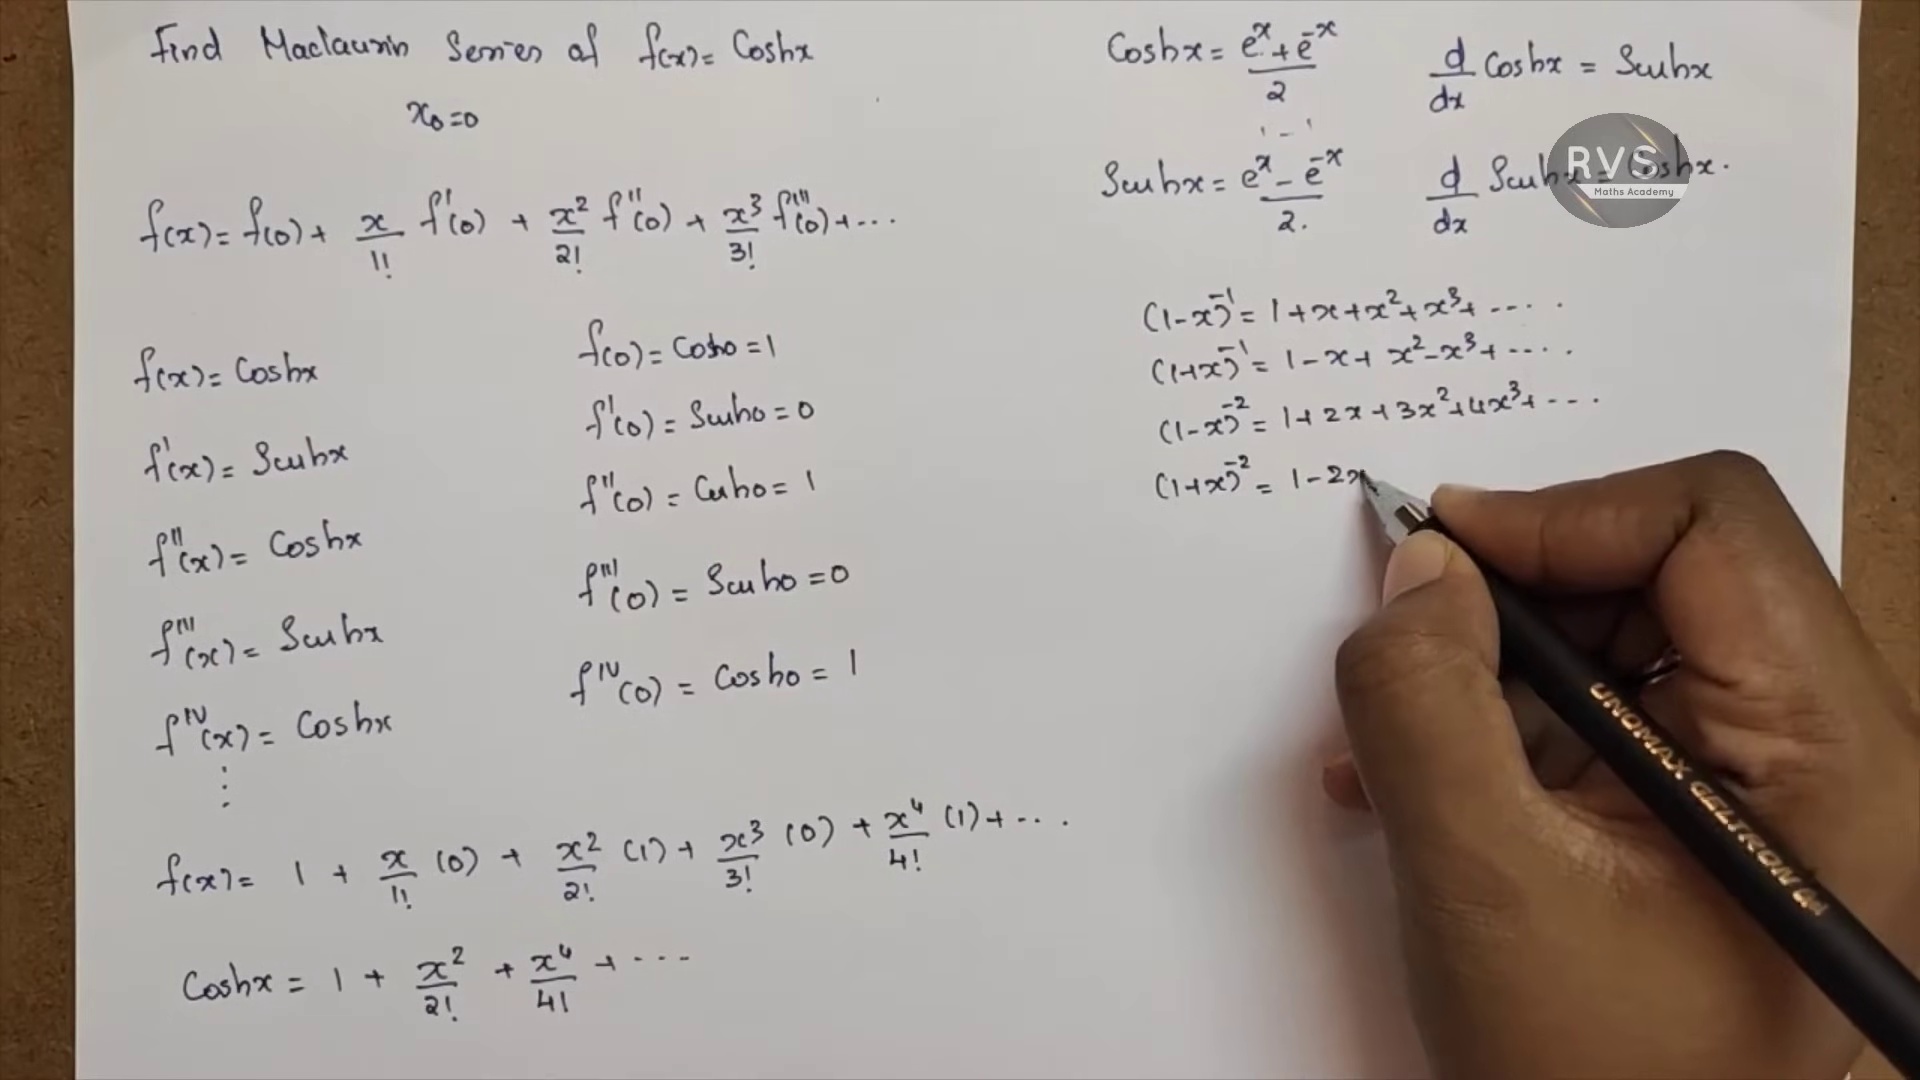 Find Maclaurin Series of f(x) = Coshx
x₀=0
f(x) = f(0) + x/1! f'(0) + x²/2! f''(0) + x³/3! f'''(0) + ...
f(x) = Coshx
f(0) = Cosh0 = 1
f'(x) = Sinhx
f'(0) = Sinh0 = 0
f''(x) = Coshx
f''(0) = Cosh0 = 1
f'''(x) = Sinhx
f'''(0) = Sinh0 = 0
f^IV(x) = Coshx
f^IV(0) = Cosh0 = 1
⋮
f(x) = 1 + x/1! (0) + x²/2! (1) + x³/3! (0) + x⁴/4! (1) + ...
Coshx = 1 + x²/2! + x⁴/4! + ...
Coshx = (e^x + e^-x)/2
d/dx Coshx = Sinhx
Sinhx = (e^x - e^-x)/2.
d/dx Sinhx = Coshx.
RVS
Maths Academy
(1-x)^-1 = 1+x+x²+x³+ ....
(1+x)^-1 = 1-x+x²-x³+ ....
(1-x)^-2 = 1+2x+3x²+4x³+ ....
(1+x)^-2 = 1-2x
UNOMAX GELTRON